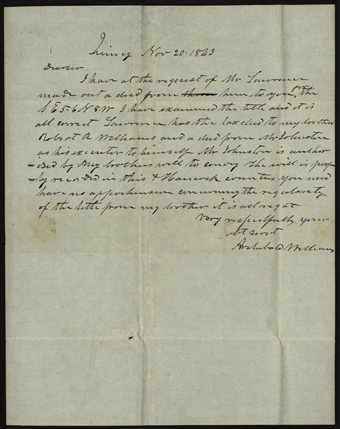 Quincy Nov 20. 1843
Dear sir
I have at the request of Mr Lawrence
made out a deed from them him to you for the
S E 5 6 N 8 W I have examined the title and it is
all correct Lawrence has the tax deed to my brother
Robert R Williams and a deed from Mr Johnston
as his executor to himself Mr Johnston is author
ised by my brothers will to convey the will is prop
ly recorded in this & Hancock counties you need
have no apprehension concerning the regularity
of the title from my brother it is all right
Very respectfully your
obt servt
Archibald Williams